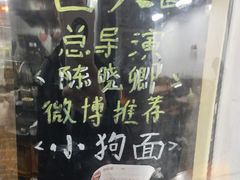 总导演
<陈晓卿
微博推荐
<小狗面>